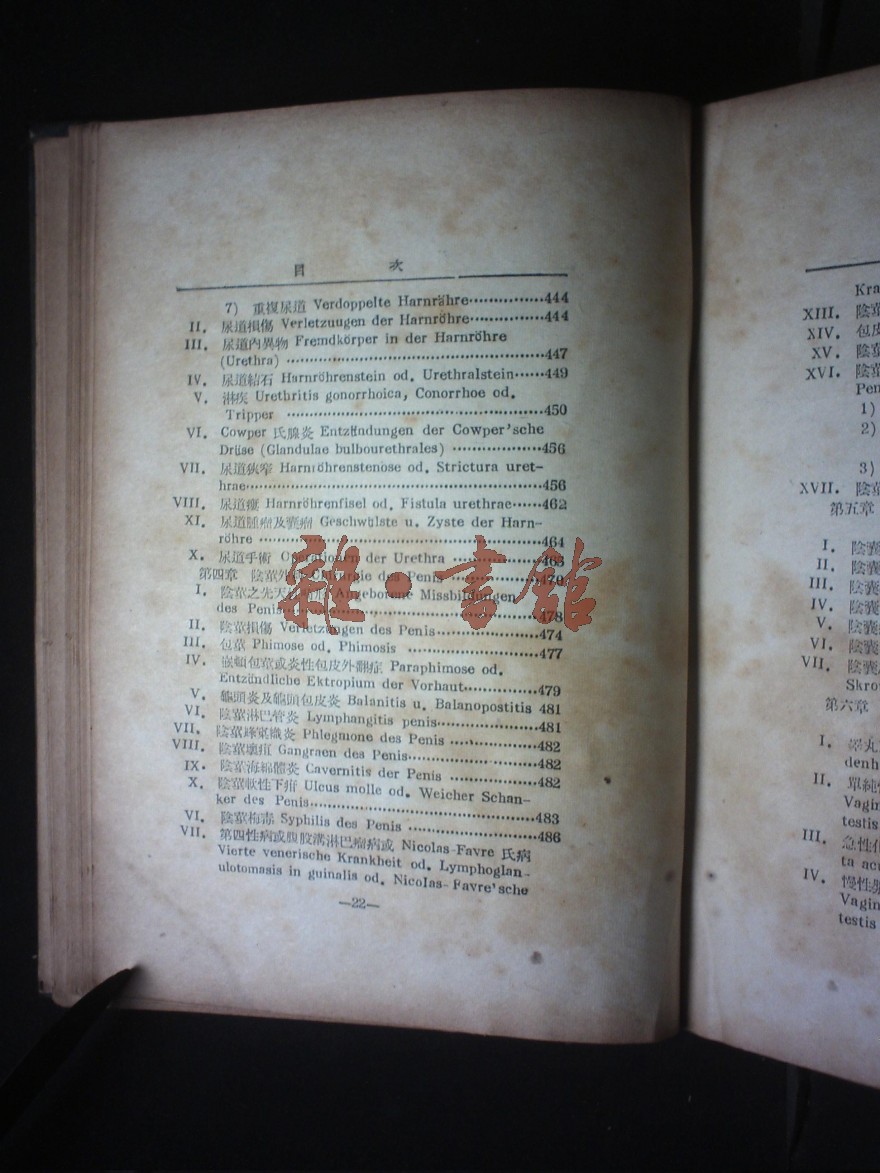 目 次
7) 重複尿道 Verdoppelte Harnrähre···············444
II. 尿道損傷 Verletzuugen der Harnröhre···············444
III. 尿道內異物 Fremdkörper in der Harnröhre
(Urethra) ···············447
IV. 尿道結石 Harnröhrenstein od. Urethralstein······449
V. 淋疾 Urethritis gonorrhoica, Conorrhoe od.
Tripper ···············450
VI. Cowper 氏腺炎 Entzündungen der Cowper'sche
Drüse (Glandulae bulbourethrales) ···············456
VII. 尿道狹窄 Harnröhrenstenose od. Strictura uret-
hrae···············456
VIII. 尿道瘻 Harnröhrenfisel od. Fistula urethrae······462
XI. 尿道腫瘤及囊瘤 Geschwülste u. Zyste der Harn-
röhre ···············464
X. 尿道手術 der Urethra ···············463
第四章 陰莖外科 Chirurgie des Penis ···············470
I. 陰莖之先天 Angeborune Missbildungen
des Penis···············478
II. 陰莖損傷 Verletzungen des Penis···············474
III. 包莖 Phimose od. Phimosis ···············477
IV. 嵌頓包莖或炎性包皮外翻症 Paraphimose od.
Entzündliche Ektropium der Vorhaut···············479
V. 龜頭炎及龜頭包皮炎 Balanitis u. Balanopostitis 481
VI. 陰莖淋巴管炎 Lymphangitis penis···············481
VII. 陰莖蜂窠織炎 Phlegmone des Penis ···············482
VIII. 陰莖壞疽 Gangraen des Penis···············482
IX. 陰莖海綿體炎 Cavernitis der Penis ···············482
X. 陰莖軟性下疳 Ulcus molle od. Weicher Schan-
ker des Penis···············483
VI. 陰莖梅毒 Syphilis des Penis ···············486
VII. 第四性病或腹股溝淋巴瘤病或 Nicolas-Favre 氏病
Vierte venerische Krankheit od. Lymphoglan-
ulotomasis in guinalis od. Nicolas-Favre'sche
—22—
雜·書館
Kra
XIII. 陰莖
XIV. 包皮
XV. 陰莖
XVI. 陰莖
Pen
1)
2)
3)
XVII. 陰莖
第五章
I. 陰囊
II. 陰囊
III. 陰囊
IV. 陰囊
V. 陰囊
VI. 陰囊
VII. 陰囊
Skro
第六章
I. 睾丸
denh
II. 單純性
Vagin
testis
III. 急性
ta acu
IV. 慢性
Vagin
testis